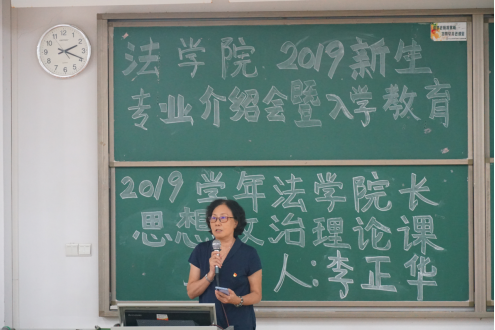 法学院 2019新生
专业介绍会暨入学教育
2019学年法学院长
思想政治理论课
人:李正华